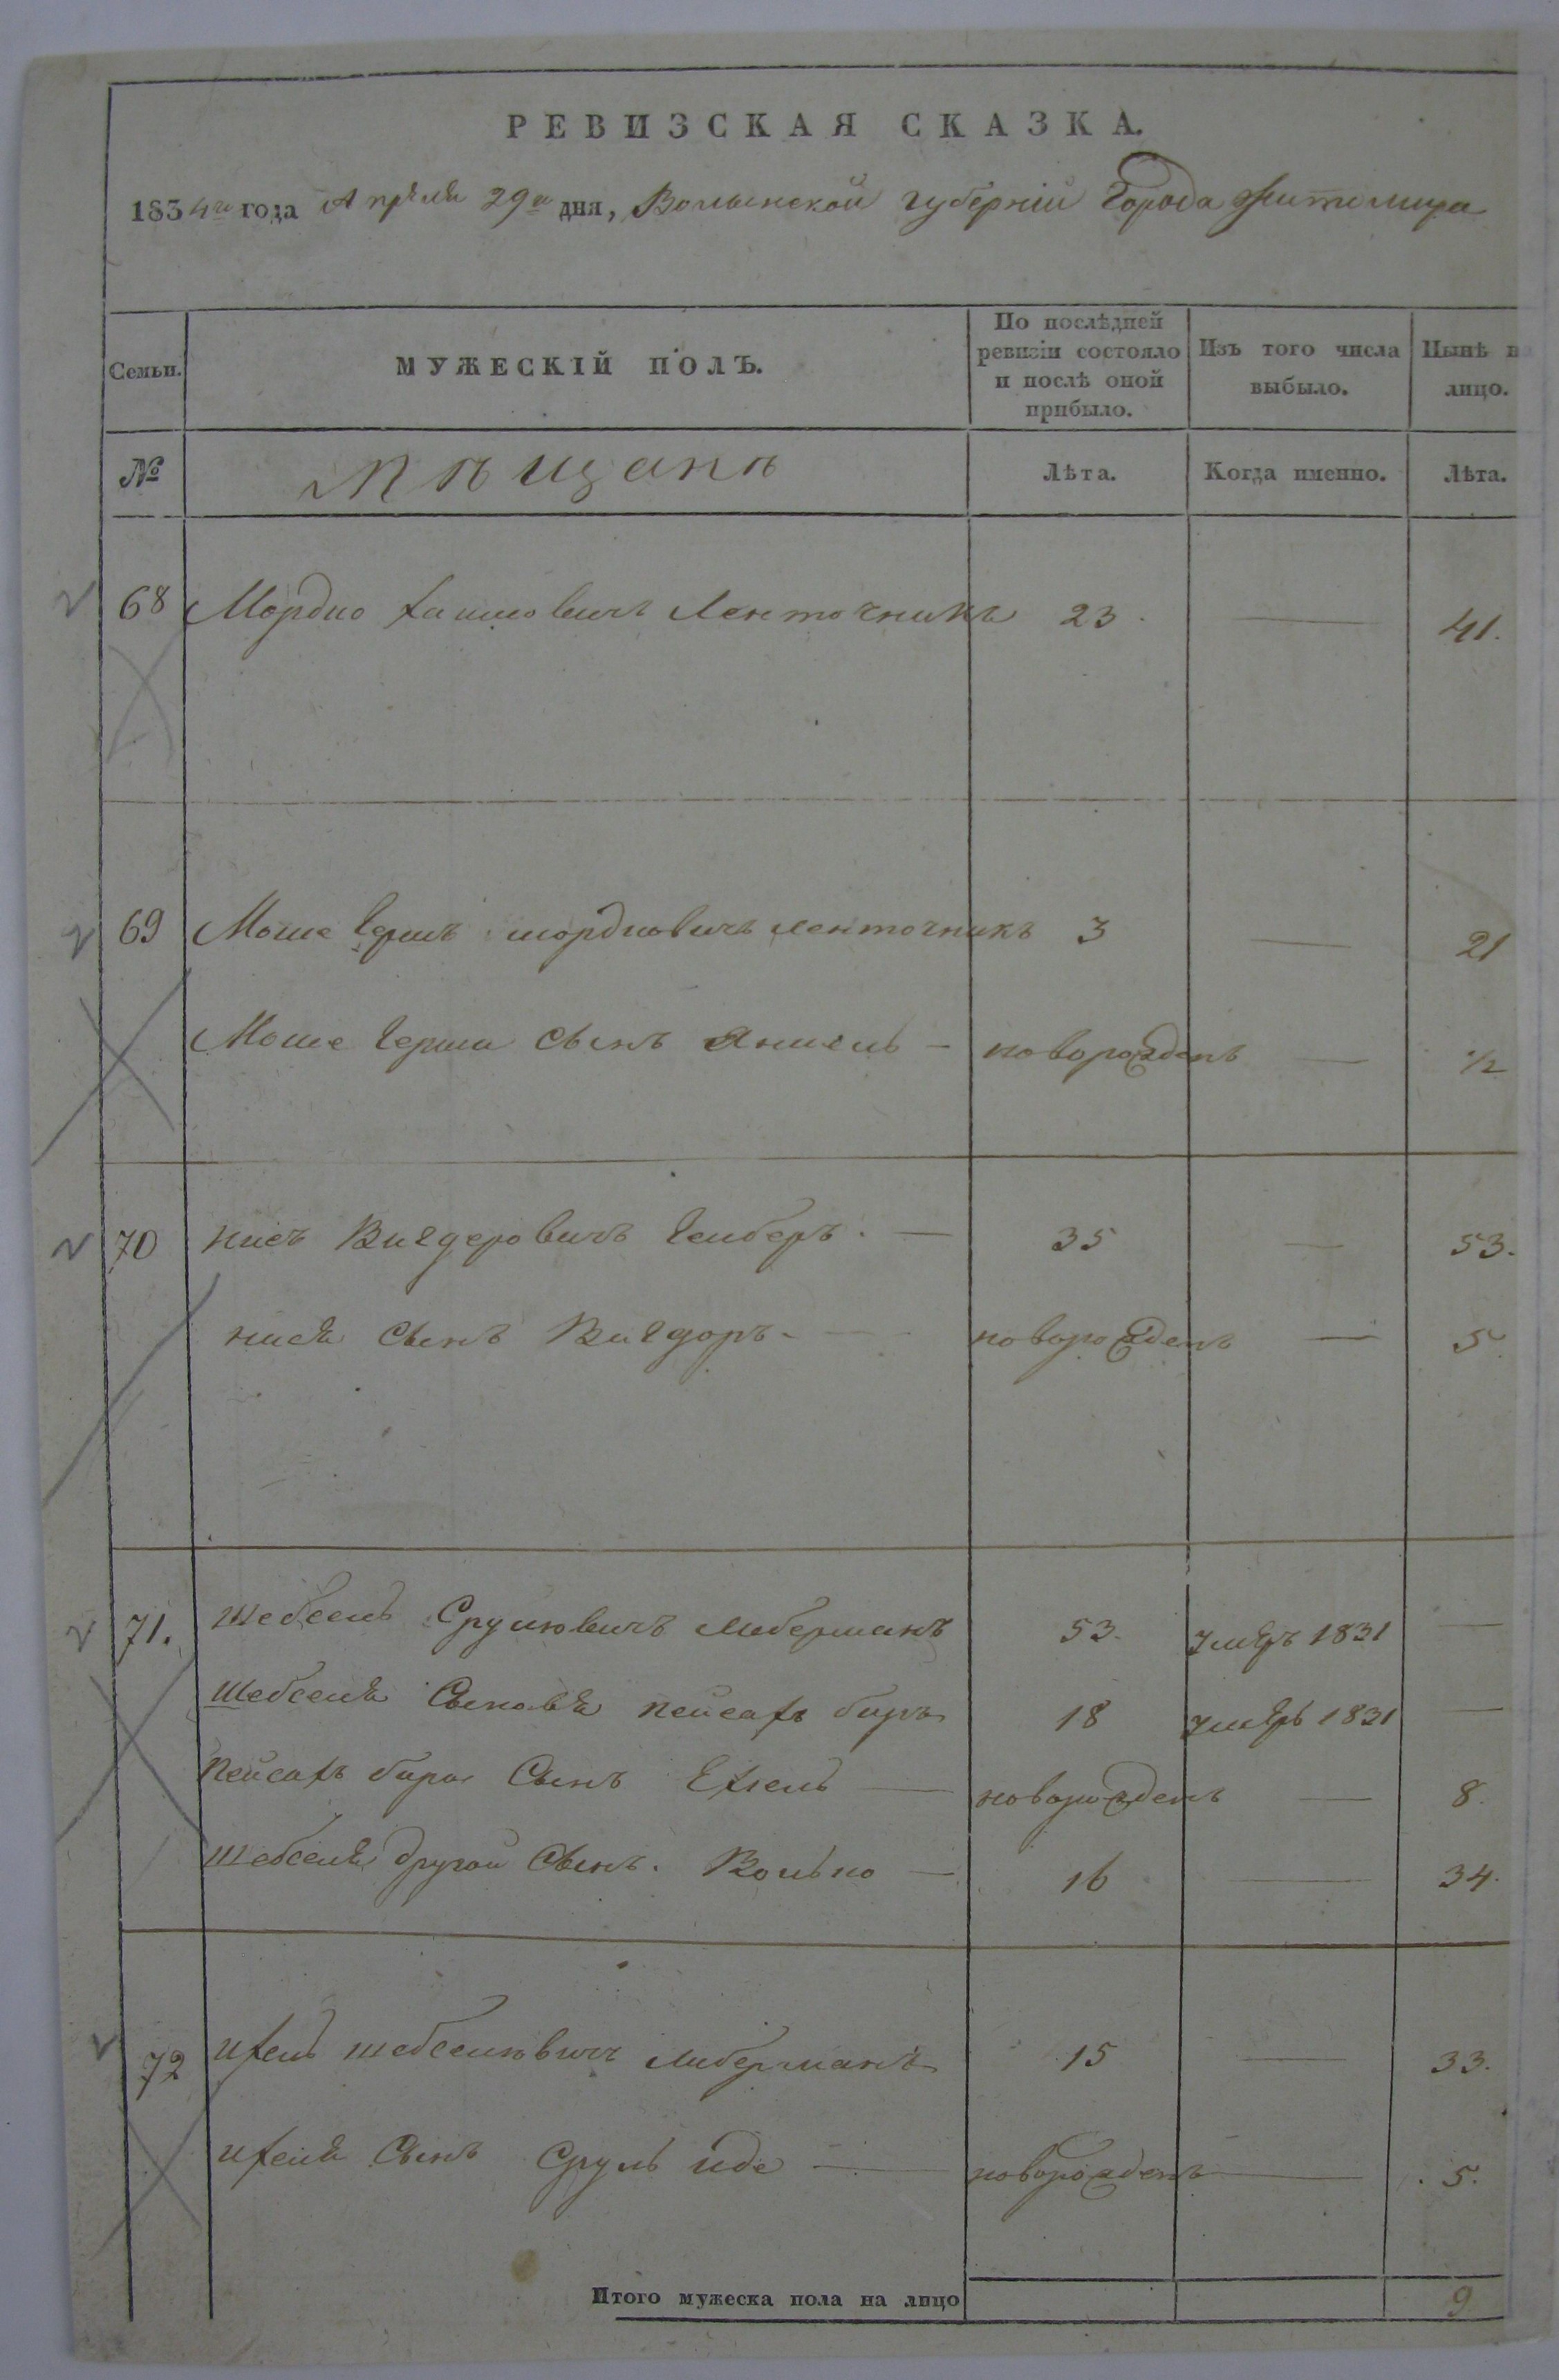 РЕВИЗСКАЯ СКАЗКА.
1834го года Апрѣля 29го дня, Волынской губерніи Города Житомира
Семьи. МУЖЕСКІЙ ПОЛЪ. По послѣдней ревизіи состояло и послѣ оной прибыло. Изъ того числа выбыло. Нынѣ на лицо.
№ Мѣщанъ Лѣта. Когда именно. Лѣта.
68 Мордко Хаимовичъ Ленточникъ 23. — 41.
69 Моше Гершъ мордковичъ ленточникъ 3 — 21
Моше Герша Сынъ Янкель — новорожденъ — 1/2
70 нисъ Вигдеровичъ Гелберъ. — 35 — 53.
нися Сынъ Вигдоръ — новорожденъ — 5.
71. Шебсель Срулювичъ Либерманъ 53. умеръ 1831 —
Шебселя Сыновья пейсахъ беръ 18 умеръ 1831 —
пейсахъ бера Сынъ Ехель — новорожденъ — 8.
шебселя другой Сынъ. Волько — 16 — 34.
72 ихель шебселювичъ либерманъ 15 — 33.
ихеля Сынъ Сруль иде — новорожденъ — 5.
Итого мужеска пола на лицо 9